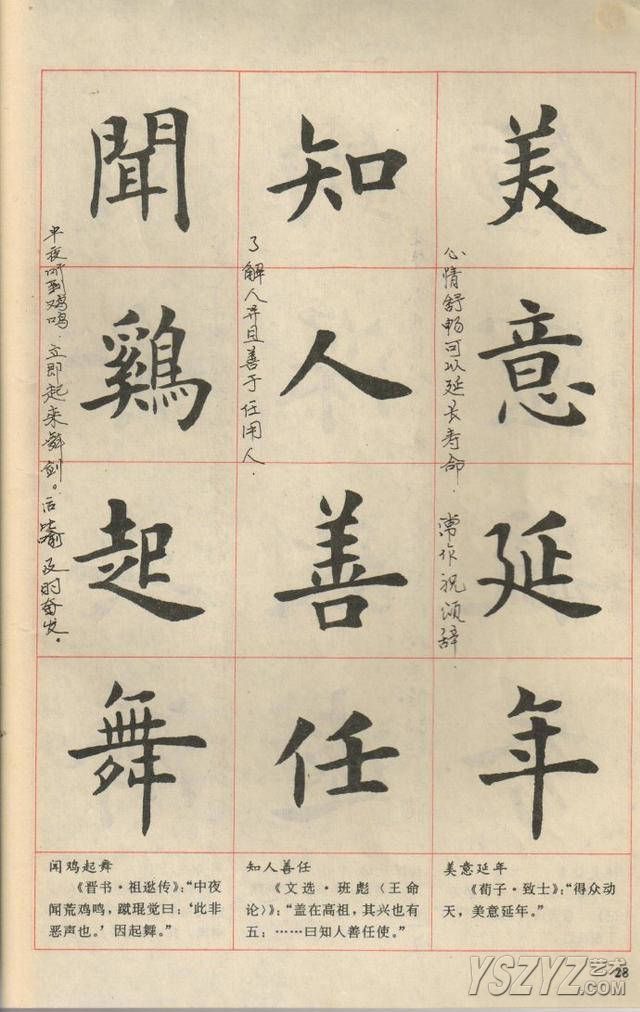 美意延年
心情舒畅可以延长寿命. 常作祝颂辞.
知人善任
了解人并且善于任用人.
聞鷄起舞
半夜听到鸡鸣.立即起来舞剑。后比喻及时奋发。
美意延年
《荀子·致士》:“得众动
天，美意延年。”
知人善任
《文选·班彪（王命
论）》:“盖在高祖，其兴也有
五：……曰知人善任使。”
闻鸡起舞
《晋书·祖逖传》:“中夜
闻荒鸡鸣，蹴琨觉曰：‘此非
恶声也。’因起舞。”
28
YSZYZ艺术.COM